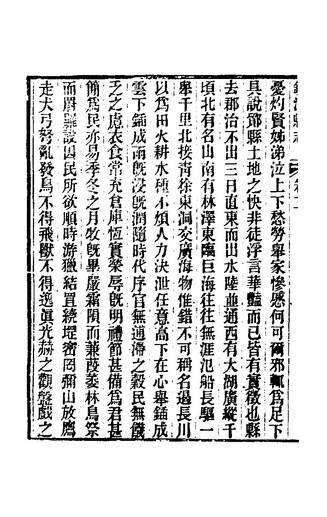 憂灼賢姊涕泣上下愁勞舉家慘慼何可爾邪輒為足下
具說鄮縣土地之快非徒浮言華豔而已皆有實徵也縣
去郡治不出三日直東而出水陸並通西有大湖廣縱千
頃北有名山南有林澤東臨巨海往往無涯氾船長驅一
舉千里北接青徐東洞交廣海物惟錯不可稱名過長川
以為田火耕水種不煩人力決泄任意高下在心舉鍤成
雲下鍤成雨旣浸旣潤隨時代序官無逋滯之穀民無饑
乏之慮衣食常充倉庫恆實榮辱旣明禮節甚備為君甚
簡為民亦易季冬之月牧旣畢嚴霜隕而蒹葭萎林鳥祭
而罻羅設因民所欲順時游獵結罝繞堽密罔彌山放鷹
走犬弓弩亂發鳥不得飛獸不得逸眞光赫之觀盤戲之